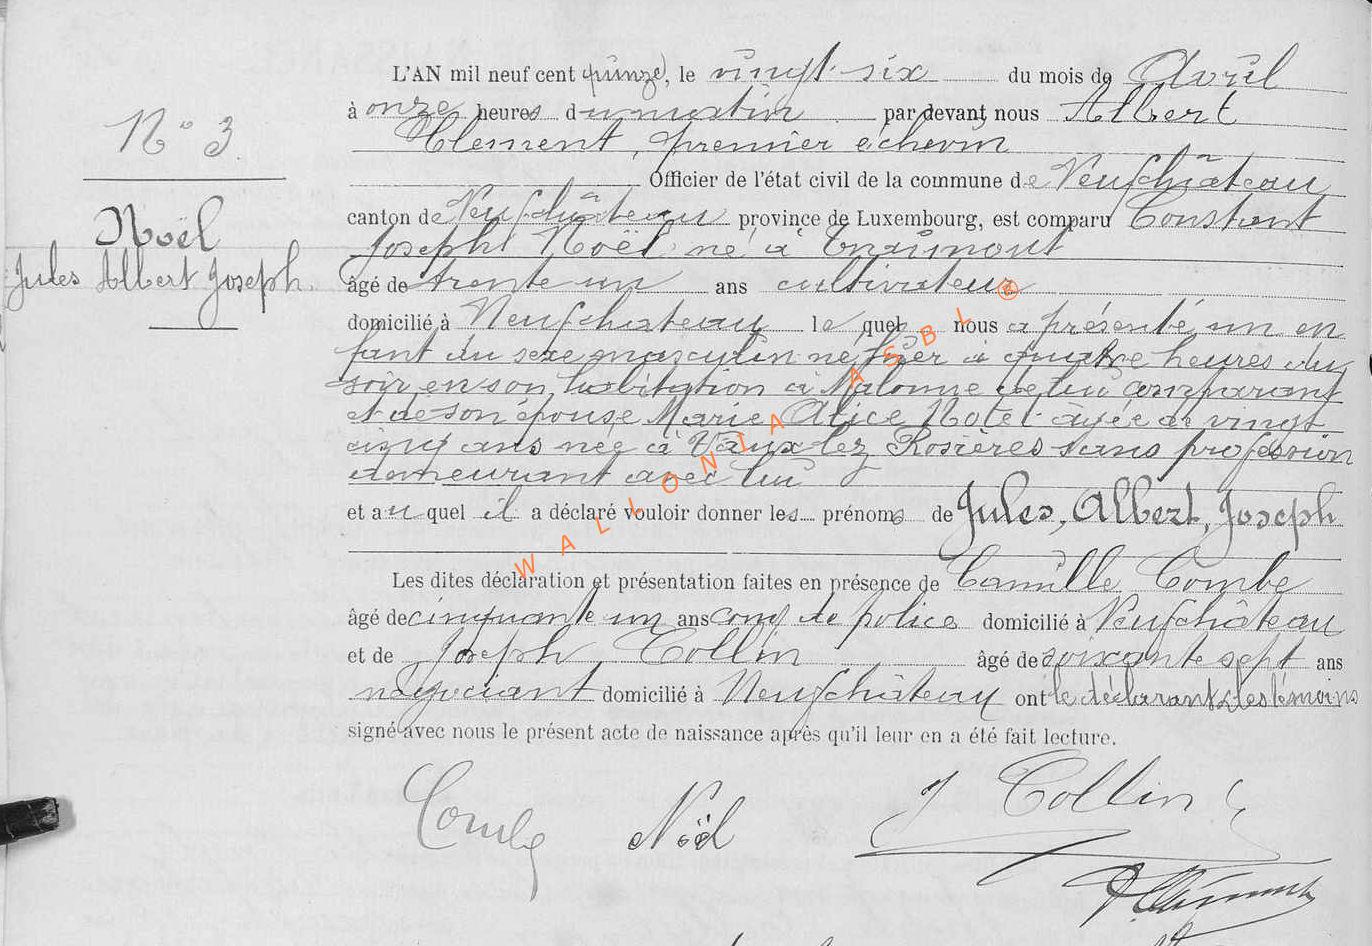 N° 3
Noël
Jules Albert Joseph
L'AN mil neuf cent quinze, le vingt-six du mois de Avril
à onze heures du matin par devant nous Albert
Clement, premier échevin
Officier de l'état civil de la commune de Neufchâteau
canton de Neufchâteau province de Luxembourg, est comparu Constant
Joseph Noël né à Traimont
âgé de trente un ans cultivateur
domicilié à Neufchateau lequel nous a présenté un en
fant du sexe masculin né hier à quatre heures du
soir en son habitation à Malome de lui comparant
et de son épouse Marie Alice Notet agée de vingt
cinq ans née à Vaux-lez Rosières sans profession
demeurant avec lui
et auquel il a déclaré vouloir donner les prénoms de Jules, Albert, Joseph
Les dites déclaration et présentation faites en présence de Camille Combe
âgé de cinquante un ans com de police domicilié à Neufchâteau
et de Joseph Collin âgé de soixante sept ans
négociant domicilié à Neufchâteau ont le déclarant & les témoins
signé avec nous le présent acte de naissance après qu'il leur en a été fait lecture.
Combe Noël J Collin
A Clément
WALLONIA ASBL ©